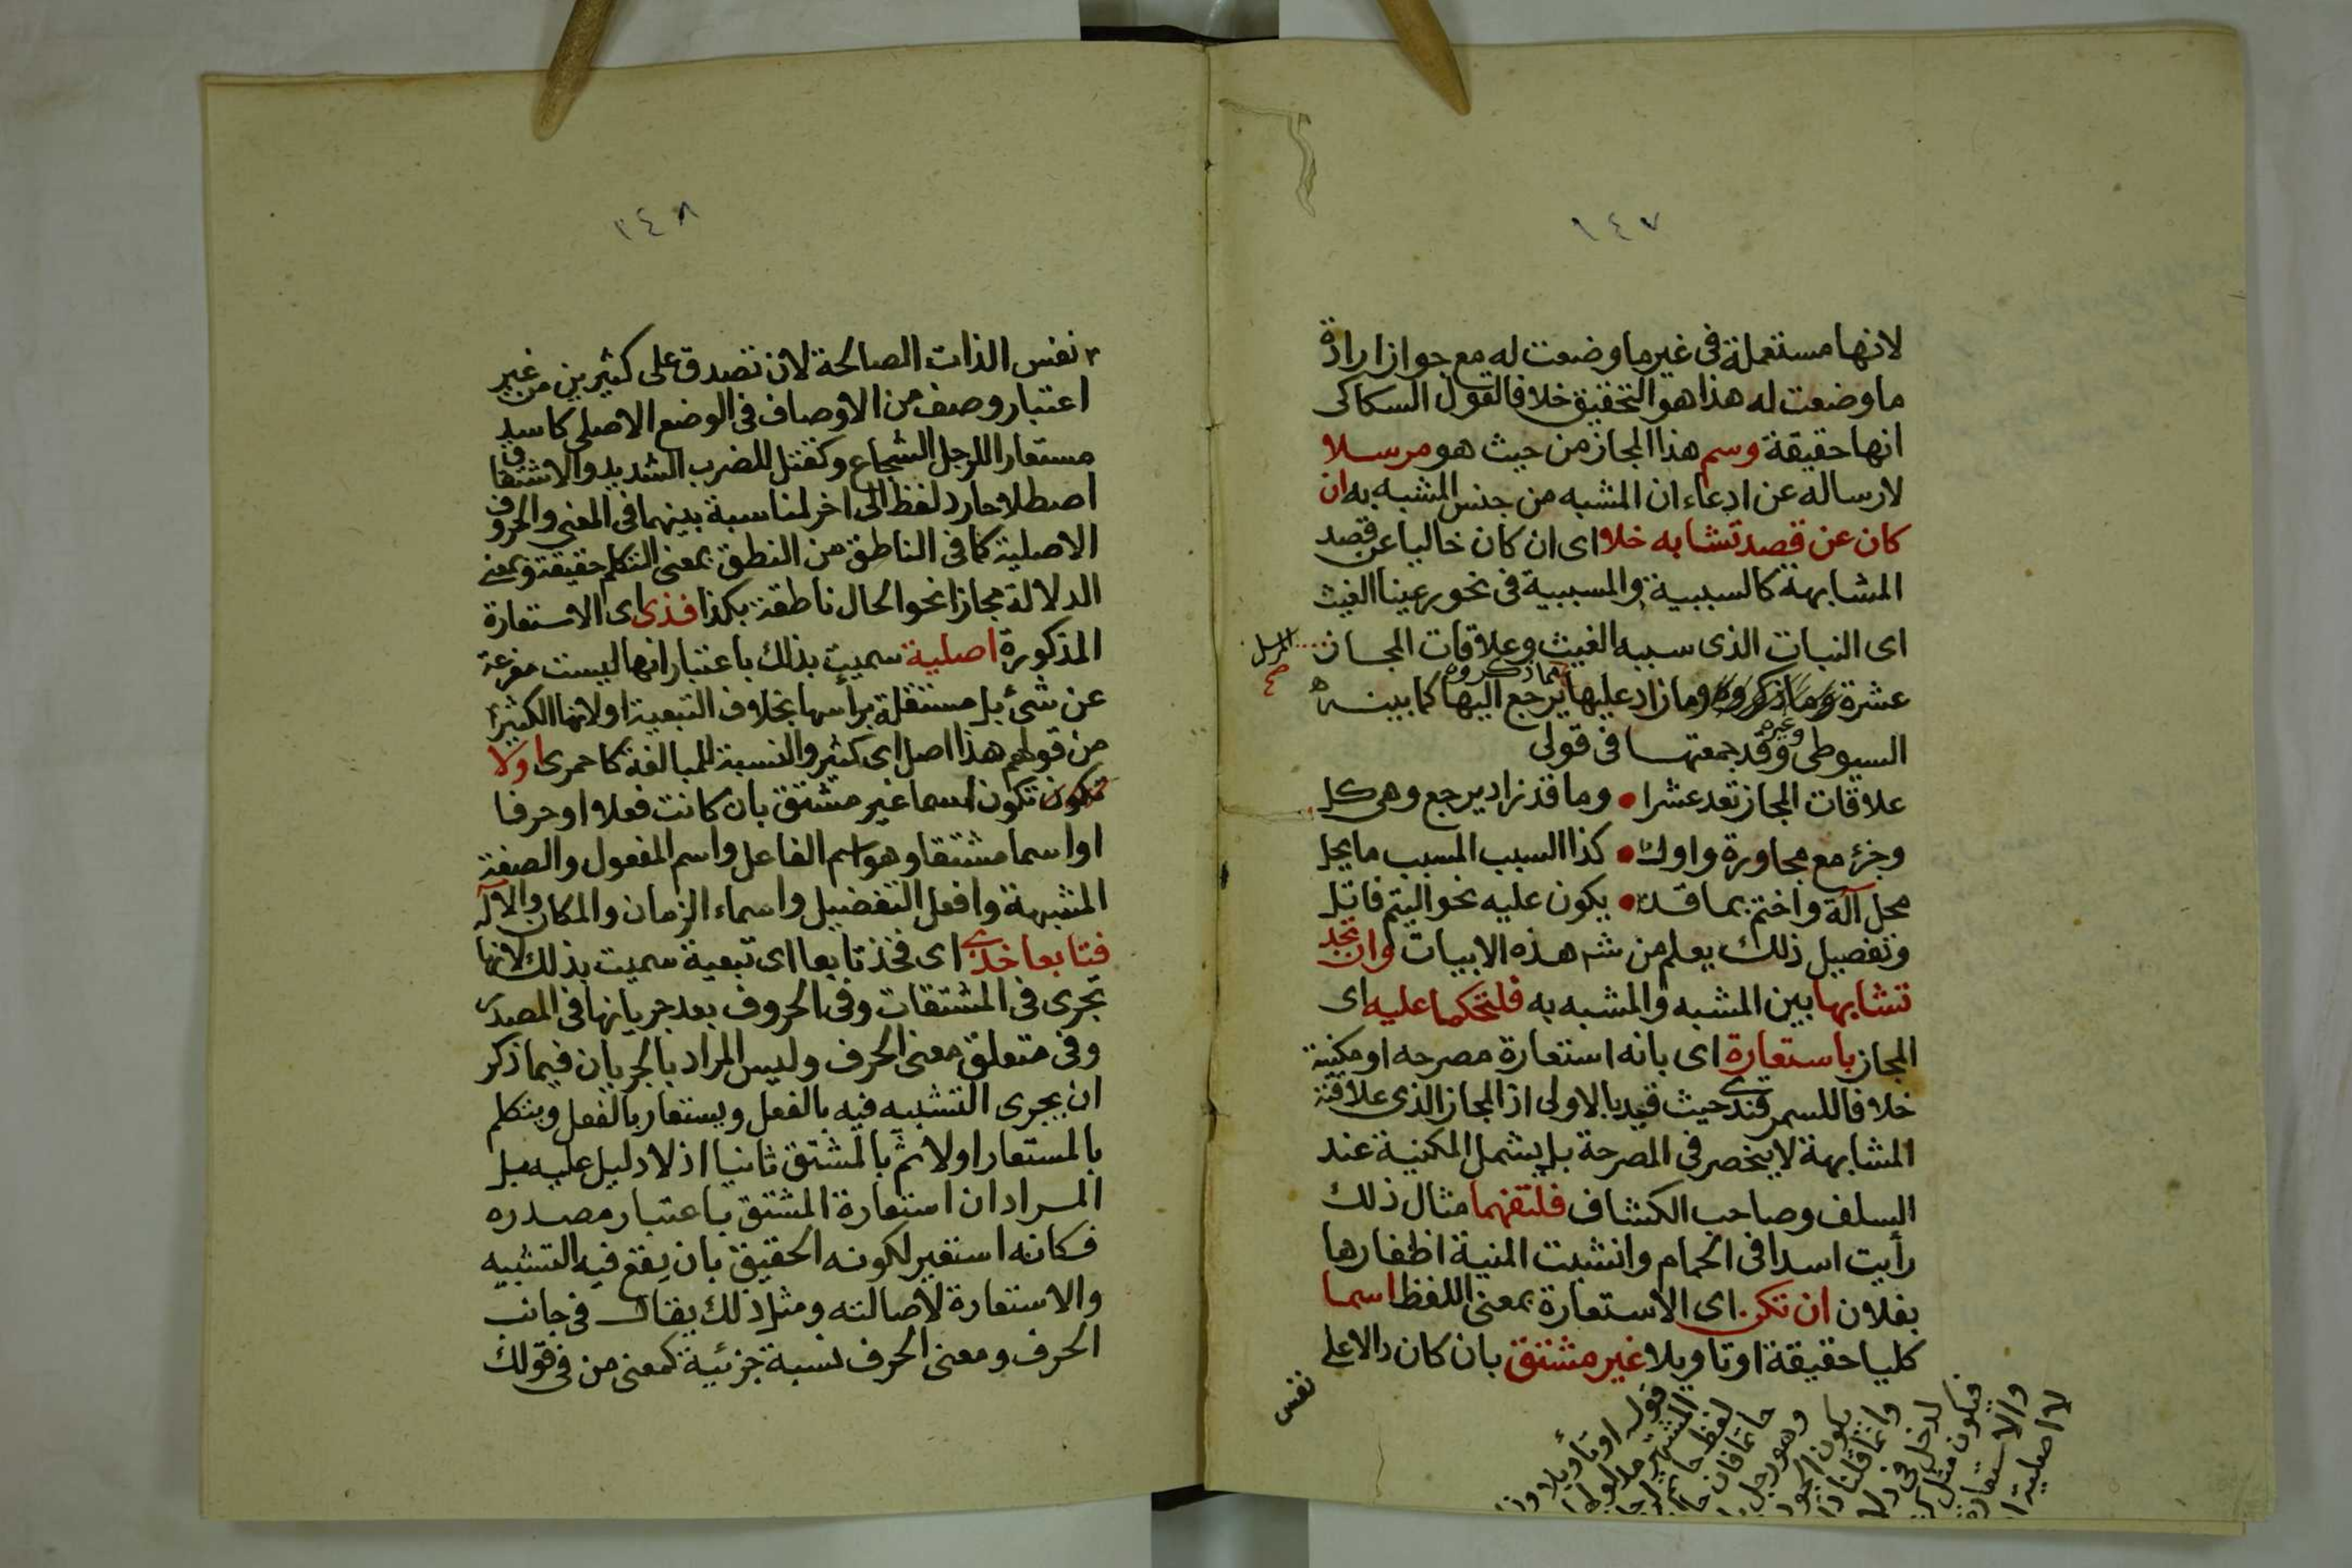 ١٤٧
لانها مستعملة فى غير ما وضعت له مع جواز ارادة
ما وضعت له هذا هو التحقيق خلافا لقول السكاكى
انها حقيقة وسم هذا المجاز من حيث هو مرسلا
لارساله عن ادعاء ان المشبه من جنس المشبه به ان
كان عن قصد تشابه خلا اى ان كان خاليا عن قصد
المشابهة كالسببية والمسببية فى نحو رعينا الغيث
اى النبات الذى سببه الغيث وعلاقات المجاز
المرسل صح
عشرة وما ذكروه وما زاد عليها مما ذكروه يرجع اليها كما بينه
السيوطى وغيره وقد جمعتها فى قولى
علاقات المجاز تعد عشرا • وما قد زاد يرجع وهى كل
وجزء مع مجاورة واول • كذا السبب المسبب ما يحل
محل آلة واختم بما قد • يكون عليه نحو اليتم فاتل
وتفصيل ذلك يعلم من شرح هذه الابيات وان تجد
تشابها بين المشبه والمشبه به فلتحكما عليه اى
المجاز باستعارة اى بانه استعارة مصرحه او مكنية
خلافا للسمرقندى حيث قيد بالاولى اذ المجاز الذى علاقته
المشابهة لا ينحصر فى المصرحة بل يشمل المكنية عند
السلف وصاحب الكشاف فلتفهما مثال ذلك
رأيت اسدا فى الحمام وانشبت المنية اظفارها
بفلان ان تكن اى الاستعارة بمعنى اللفظ اسما
كليا حقيقة او تاويلا غير مشتق بان كان دالا على
نفس
قوله او تأويلا
المشتهر مدلولها
لفظ حاتم
حاتما فان
وهو رجل
يكون الجود
وانما قلنا
لدخل فى
فيكون مثل
والاستعارة
لا اصلية
٢٤٨
نفس الذات الصالحة لان تصدق على كثيرين من غير
اعتبار وصف من الاوصاف فى الوضع الاصلى كاسد
مستعارا للرجل الشجاع وكقتل للضرب الشديد والاشتقاق
اصطلاحا رد لفظ الى اخر لمناسبة بينهما فى المعنى والحروف
الاصلية كما فى الناطق من النطق بمعنى التكلم حقيقة وبمعنى
الدلالة مجازا نحو الحال ناطقة بكذا فذى اى الاستعارة
المذكورة اصلية سميت بذلك باعتبار انها ليست مفرعة
عن شئ بل مستقلة برأسها بخلاف التبعية او لانها الكثيرة
من قولهم هذا اصل اى كثير والنسبة للمبالغة كاحمرى او لا
تكون تكون اسما غير مشتق بان كانت فعلا او حرفا
او اسما مشتقا وهو اسم الفاعل واسم المفعول والصفة
المشبهة وافعل التفضيل واسماء الزمان والمكان والآلة
فتابعا خذى اى فخذ تابعا اى تبعية سميت بذلك لانها
تجرى فى المشتقات وفى الحروف بعد جريانها فى المصدر
وفى متعلق معنى الحرف وليس المراد بالجريان فيما ذكر
ان يجرى التشبيه فيه بالفعل ويستعار بالفعل ويتكلم
بالمستعار اولا ثم بالمشتق ثانيا اذ لا دليل عليه بل
المراد ان استعارة المشتق باعتبار مصدره
فكانه استعير لكونه الحقيق بان يقع فيه التشبيه
والاستعارة لاصالته ومثل ذلك يقال فى جانب
الحرف ومعنى الحرف نسبة جزئية كمعنى من فى قولك